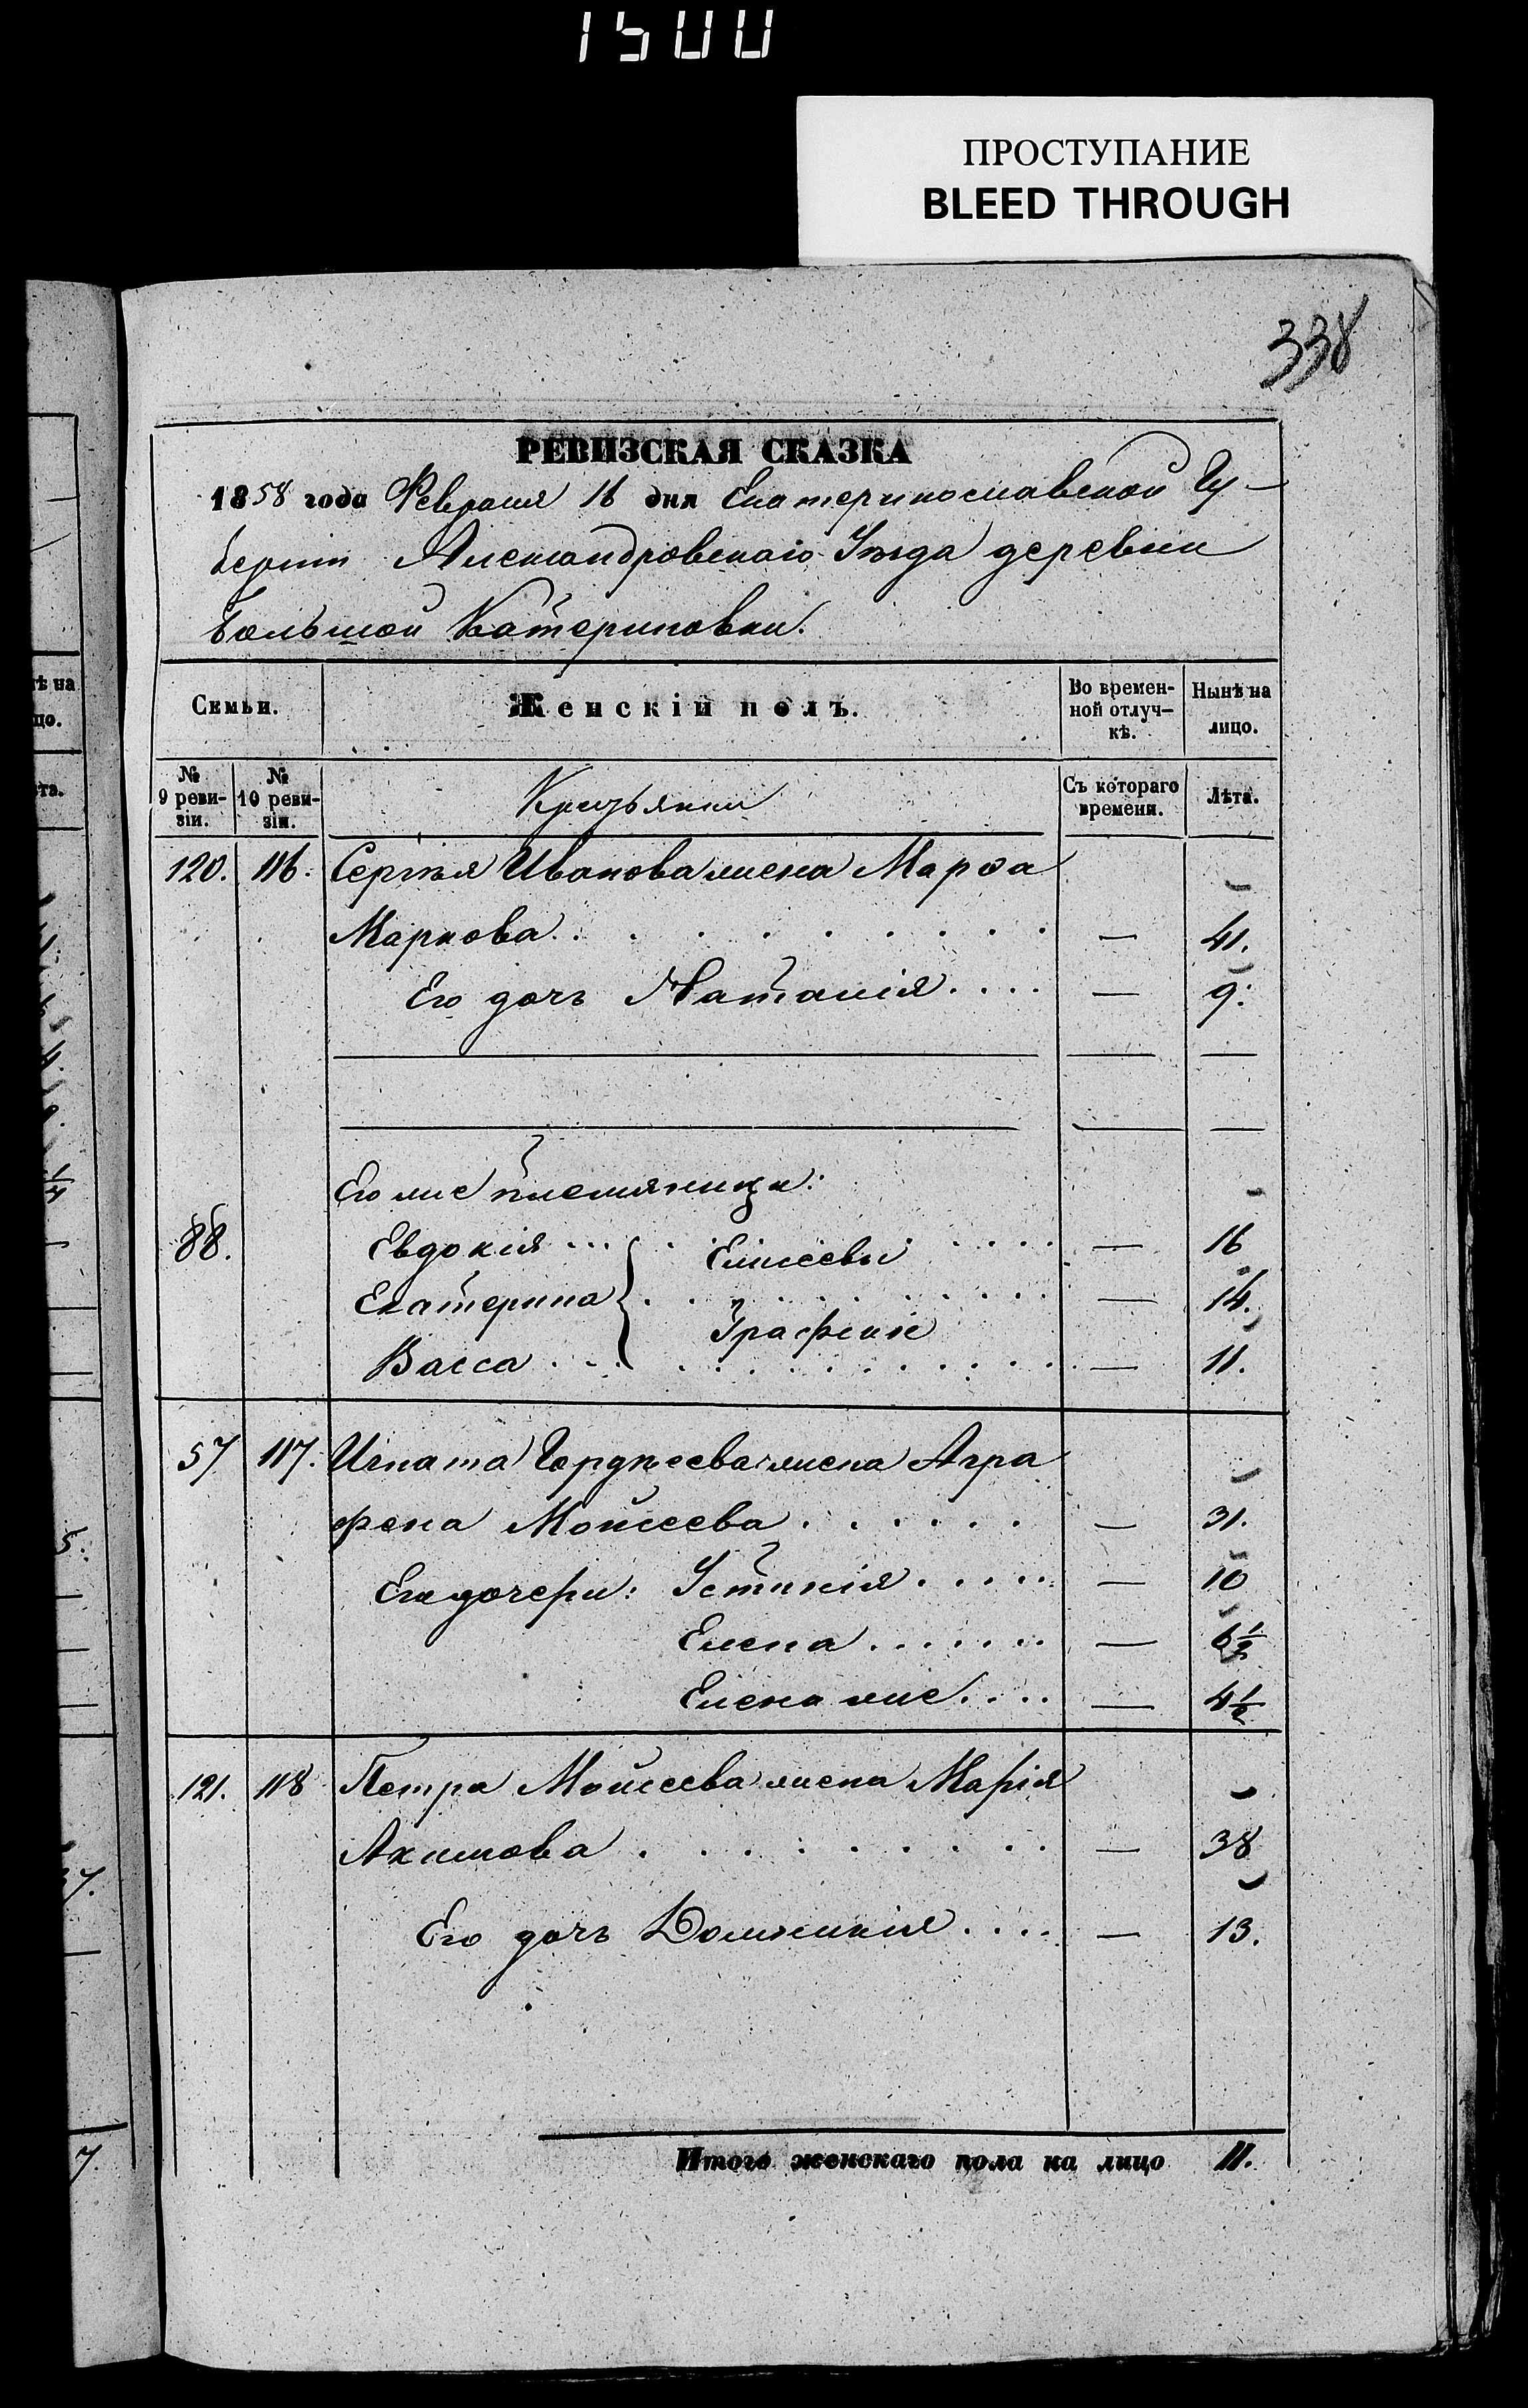 1500
ПРОСТУПАНИЕ
BLEED THROUGH
338
РЕВИЗСКАЯ СКАЗКА
1858 года Февраля 16 дня Екатеринославской Гу-
берніи Александровскаго Уѣзда деревни
Большой Катериновки.
Семьи. Женскій полъ. Во времен-ной отлуч-кѣ. Нынѣ на лицо.
№ 9 реви-зіи. № 10 реви-зіи. Крестьянки Съ котораго времени. Лѣта.
120. 116. Сергѣя Иванова жена Марѳа
Маркова . . . . . . . . — 41.
Его дочь Наталія . . . . — 9.
Его же племяницы:
88. Евдокія . . . . . . . — 16
Елисеевы
Екатерина . . . . . . . — 14.
Васса . . . . . . . . . — 11.
57 117. Игната Гордѣева жена Агра
фена Моисеева . . . . . . — 31.
Его дочери: Устинія . . . . . — 10
Елена . . . . . . — 6½
Елена же . . . . — 4½
121. 118 Петра Моисеева жена Марія
Акимова . . . . . . . . — 38
Его дочь Домникія . . . . — 13.
Итого женскаго пола на лицо 11.
ѣ на
цо.
та.
5.
7.
7.